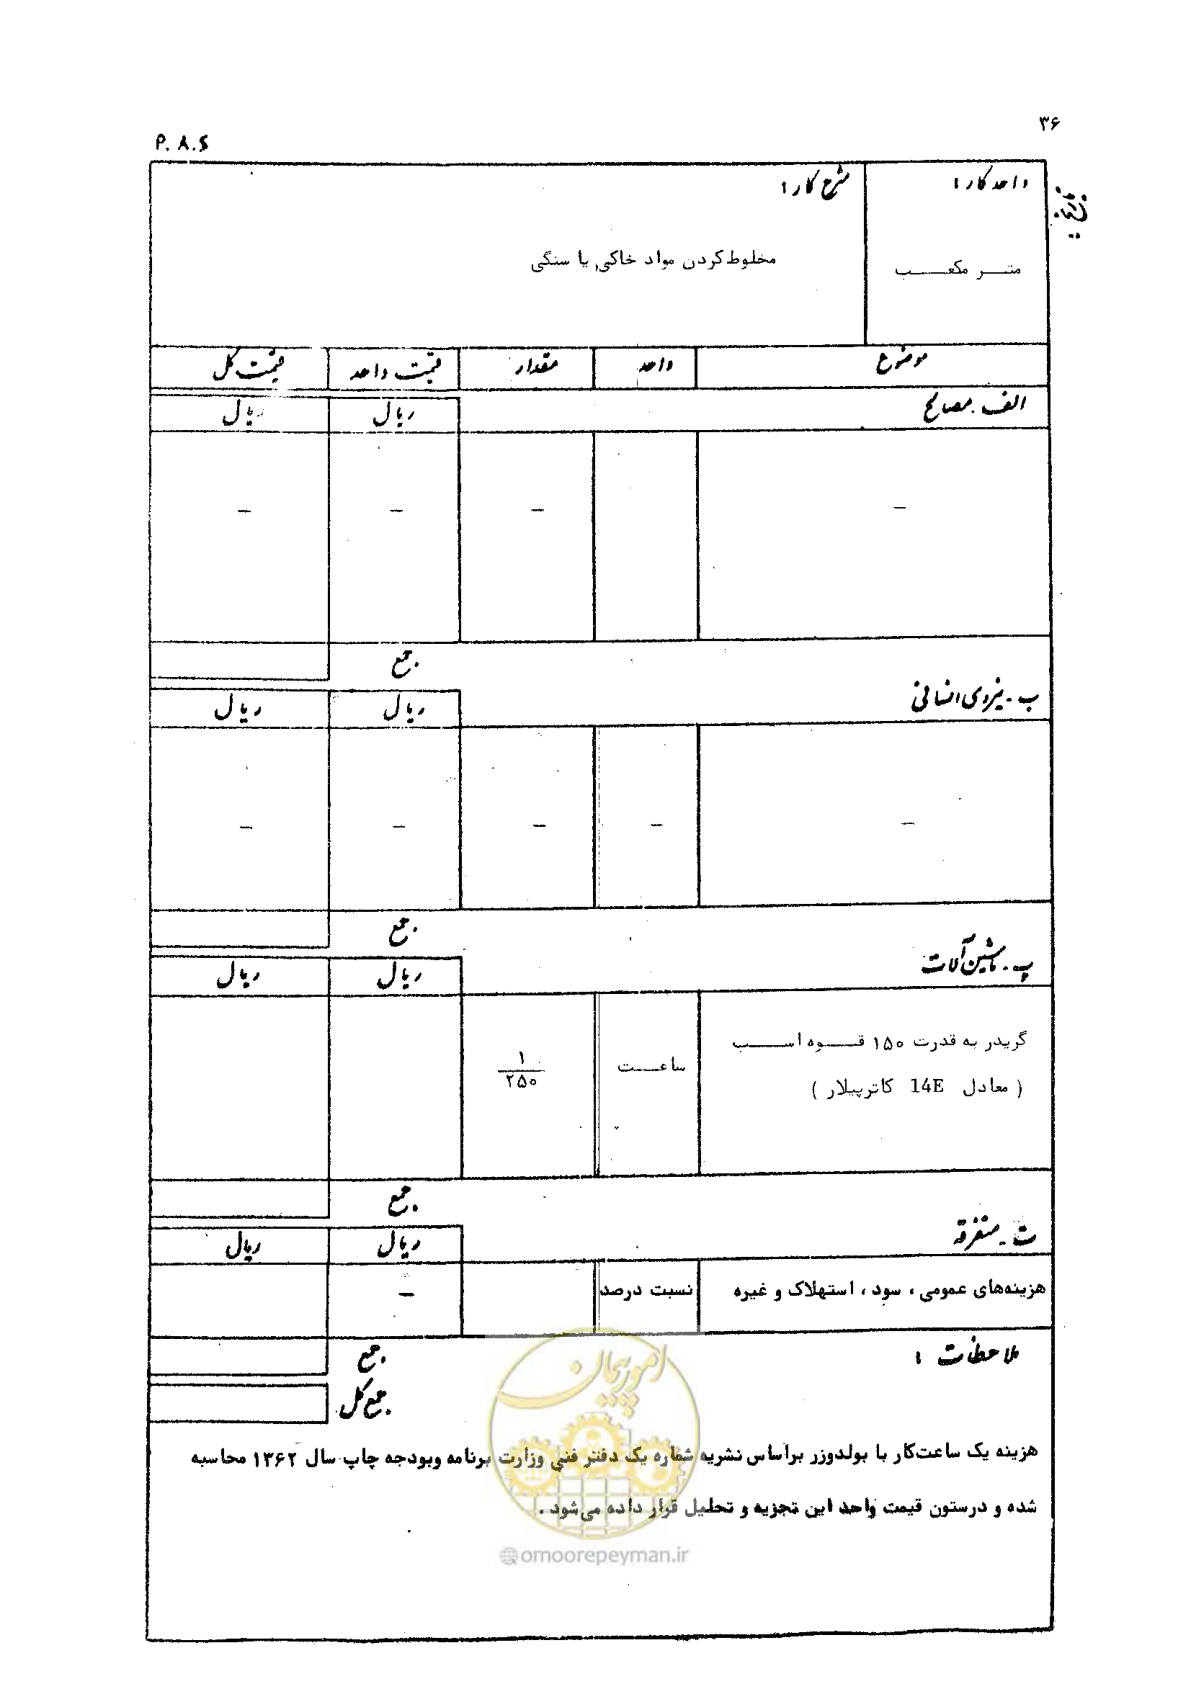 ۳۶
P. A. S
تاریخ:
واحد کار:
شرح کار:
متر مکعب
مخلوط کردن مواد خاکی یا سنگی
موضوع واحد مقدار قیمت واحد قیمت کل
الف - مصالح ریال ریال
– – – –
جمع
ب - نیروی انسانی ریال ریال
– – – – –
جمع
پ - ماشین آلات ریال ریال
گریدر به قدرت ۱۵۰ قوه اسب ساعت ۱/۲۵۰
( معادل 14E کاترپیلار )
جمع
ت - متفرقه ریال ریال
هزینه‌های عمومی ، سود ، استهلاک و غیره نسبت درصد –
ملاحظات : جمع
جمع کل
امور پیمان
هزینه یک ساعت‌کار با بولدوزر براساس نشریه شماره یک دفتر فنی وزارت برنامه وبودجه چاپ سال ۱۳۶۲ محاسبه
شده و درستون قیمت واحد این تجزیه و تحلیل قرار داده می‌شود .
@omoorepeyman.ir